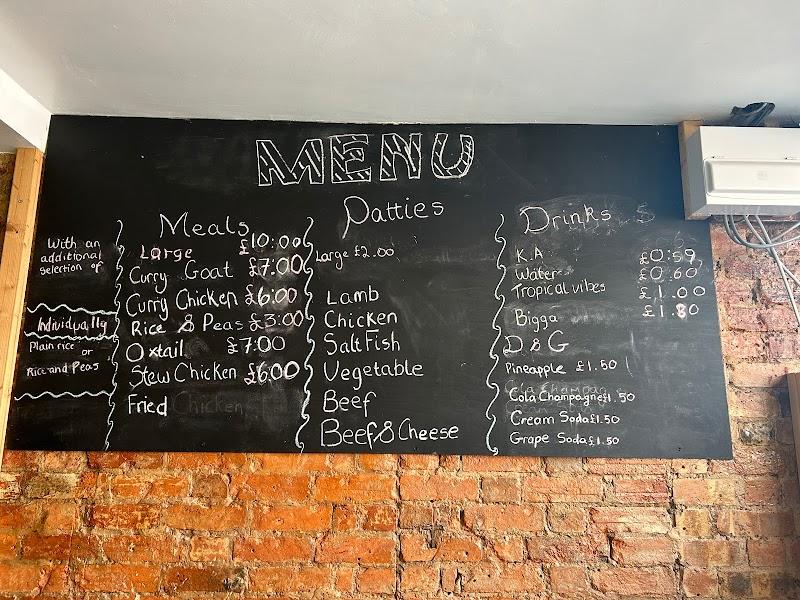 MENU
With an
additional
selection of
Individually
Plain rice or
Rice and Peas
Meals
LARGE £10:00
Curry Goat £7:00
Curry Chicken £6:00
Rice & Peas £3:00
Oxtail £7:00
Stew Chicken £6:00
Fried Chicken
Patties
Large £2.00
Lamb
Chicken
Salt Fish
Vegetable
Beef
Beef & Cheese
Drinks
K.A £0:59
Water £0.60
Tropical vibes £1.00
Bigga £1.80
D & G
Pineapple £1.50
Cola Champagne £1.50
Cream Soda £1.50
Grape Soda £1.50